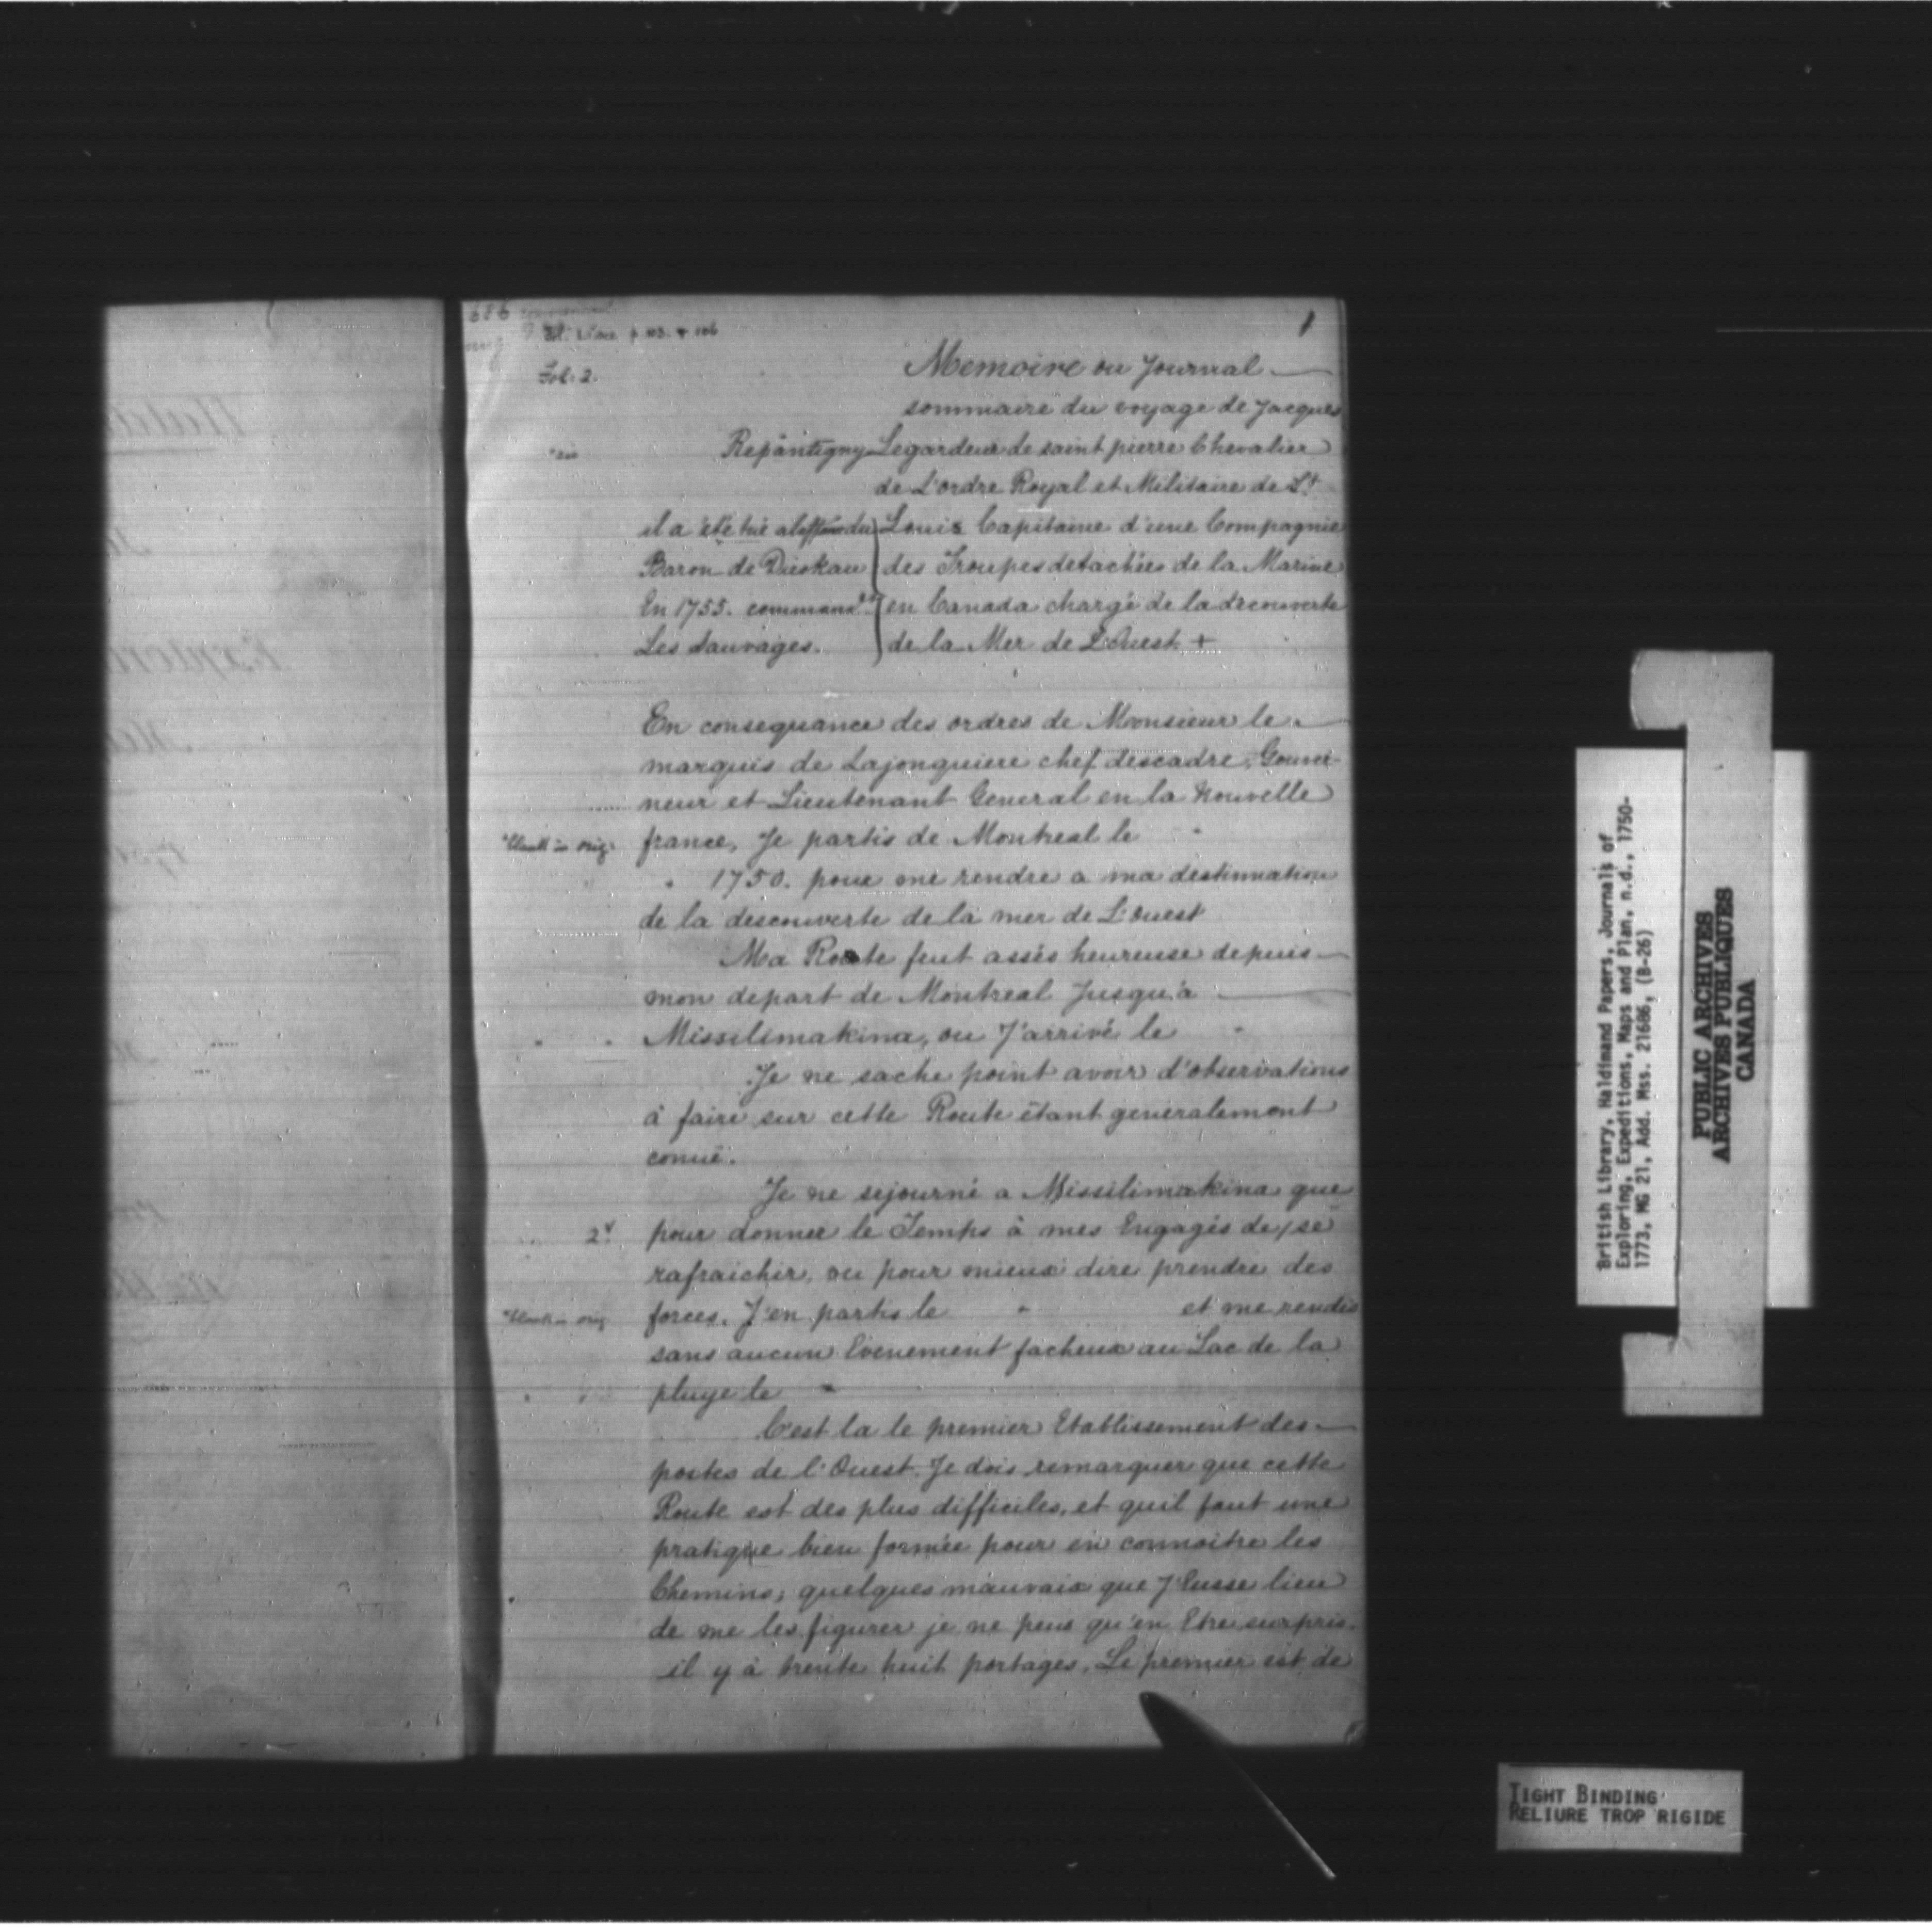 1
Fol. 2.
Memoire ou Journal
sommaire du voyage de Jacques
Repantigny Legardeur de saint pierre Chevalier
de L'ordre Royal et Militaire de St
il a été tué du
Baron de Dieskau
En 1755. command.nt
Les Sauvages.
Louis Capitaine d'une Compagnie
des Troupes detachées de la Marine
en Canada chargé de la decouverte
de la Mer de L'Ouest +
En consequance des ordres de Monsieur le
marquis de Lajonquiere chef descadre, Gouver-
neur et Lieutenant General en la Nouvelle
*Blank in orig.
france, Je partis de Montreal le "
" 1750. pour me rendre a ma destination
de la descouverte de la mer de L'ouest
Ma Route feut assés heureuse depuis
mon depart de Montreal Jusqu'a
Missilimakina, ou J'arrivé le "
Je ne sache point avoir d'observations
à faire sur cette Route étant generalement
conuë.
Je ne sejourné a Missilimakina que
2v pour donner le Temps à mes Engagés de/se
rafraichir, ou pour mieux dire prendre des
*Blank in orig
forces. J'en partis le " et me rendis
sans aucun Evenement facheux au Lac de la
pluye le "
C'est la le premier Etablissement des
postes de l'Ouest. Je dois remarquer que cette
Route est des plus difficiles, et quil faut une
pratique bien formée pour en connoitre les
Chemins; quelques mauvais que J'Eusse lieu
de me les figurer je ne peus qu'en Etre surpris.
il y à trente huit portages, Le premier est de
British Library, Haldimand Papers, Journals of
Exploring, Expeditions, Maps and Plan, n.d., 1750-
1773, MG 21, Add. Mss. 21686, (B-26)
PUBLIC ARCHIVES
ARCHIVES PUBLIQUES
CANADA
TIGHT BINDING
RELIURE TROP RIGIDE